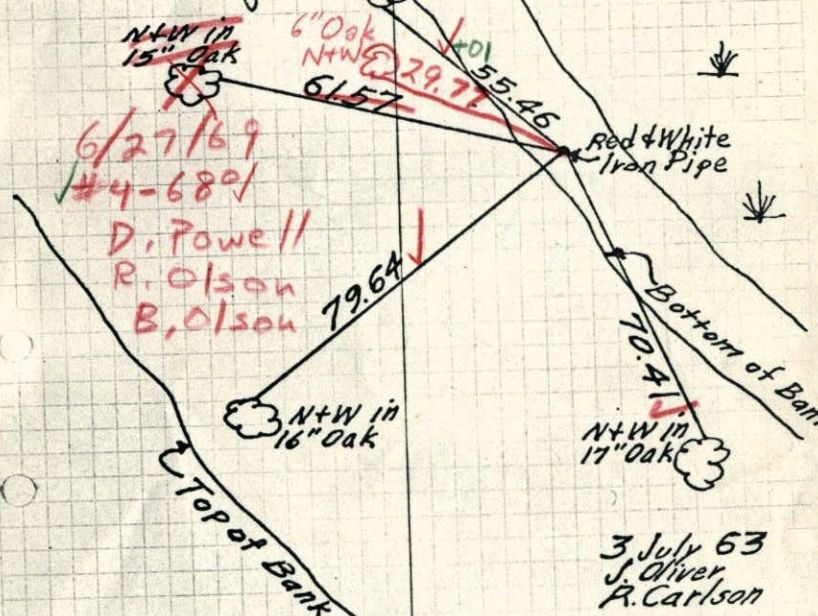 N+W in
15" Oak
6" Oak
N+W
+01
29.77
55.46
61.57
Red & White
Iron Pipe
6/27/69
#4-68°
D. Powell
R. Olson
B. Olson
79.64
Bottom of Ban
70.41
N+W in
16" Oak
N+W in
17" Oak
Top of Bank
3 July 63
J. Oliver
R. Carlson